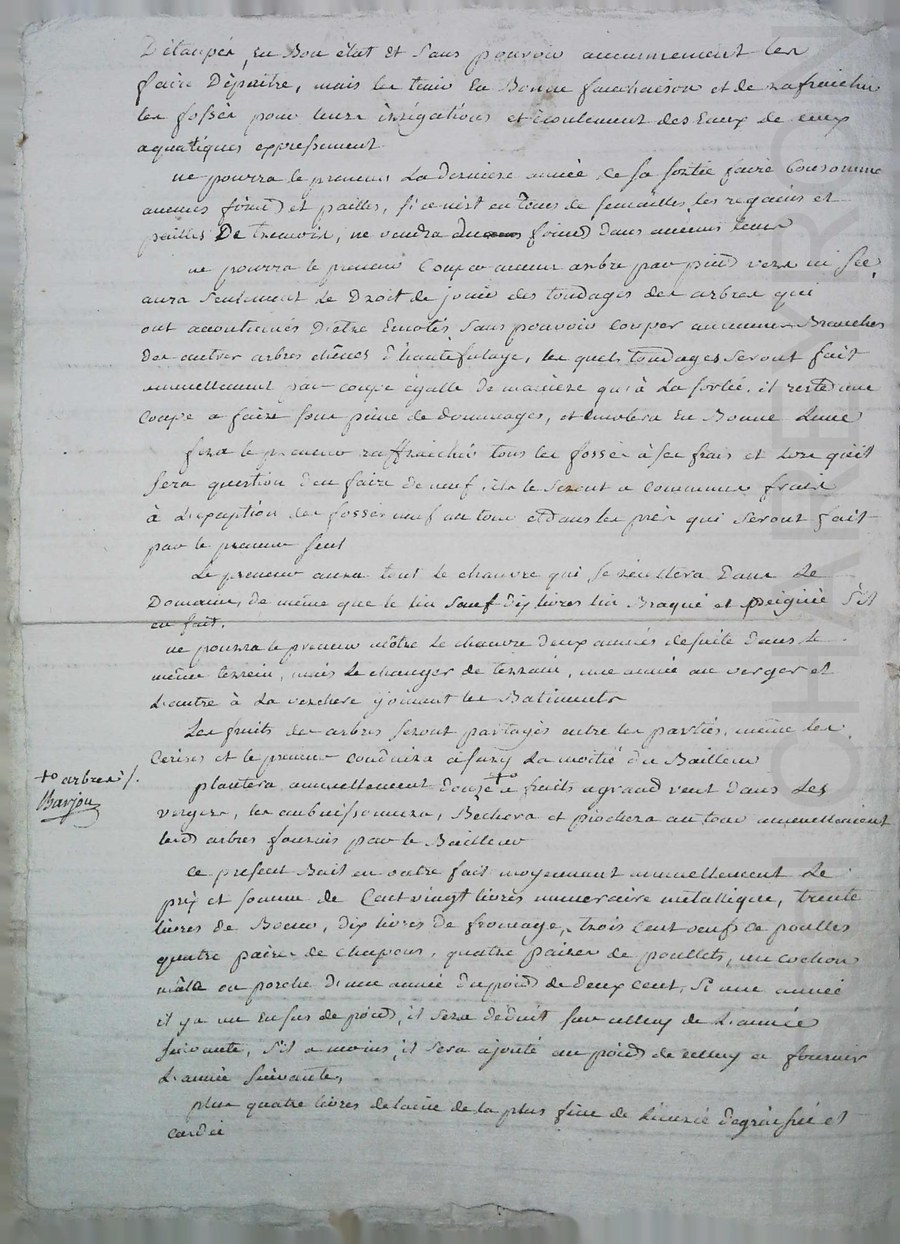 Détaupés, en Bon état Et Sans pouvoir aucunement les
faire Dépaitre, mais les tenir En Bonne fauchaison et de rafraichir
les fossés pour leurs irrégations et écoulement des Eaux de ceux
aquatiques expressement
ne pourra le preneur La derniere année de sa sortie faire Consommer
aucuns foins et pailles, si ce n'est en tems de semailles, les regains et
pailles De tremois, ne vendra aucuns foins dans aucuns tems
ne pourra le preneur Couper aucun arbre par pied vers ni sec,
aura seulement Le Droit de jouir des tondages des arbres qui
ont acoutumés D'etre Emotés, sans pouvoir couper aucunnes Branches
des autres arbres chênes d'hautefutaye, les quels tondages seront fait
annuellement par coupe égalle de manière qu'à La sortie, il reste une
Coupe a faire sous peine de dommages, et emotera En Bonne Lune
fera le preneur raffraichir tous les fossés à ses frais et lors qu'il
sera question d'en faire de neuf, ils le seront a communs frais
à L'exception des fosses neuf au tour et dans les prés qui seront fait
par le preneur seul
Le preneur aura tout le chanvre qui se recultera Dans Le
Domaine, de même que le lin sauf dix livres lin Braqué et peignée s'il
en fait.
ne pourra le preneur mêtre Le chanvre deux années de suite dans Le
même terrein, mais Le changer de terrain, une année au verger et
L'autre à La verchere joignant les Batiments
Les fruits des arbres seront partagés entre les parties, même les
Cerises et le preneur conduira à La moitié du Bailleur
plantera annuellement douze +o a fruits a grand vent dans Les
+o arbres /.
Barjon
vergers, les anbuissonnera, Bechera et piochera au tour annuellement
lesd arbres fournis par le Bailleur
Ce present Bail en outre fait moyennant annuellement Le
prix et somme de Cent vingt livres numeraire metallique, trente
livres de Beurre, dix livres de fromage, trois Cent oeufs de poulles
quatre paires de chapons, quatre paires de poullets, un cochon
mâle ou porche d'une année du poid de deux cent, Si une année
il y a un En sus de poid, il sera déduit sur celluy de L'année
suivante, s'il a moins, il sera ajouté au poid de celluy a fournir
L'année suivante,
plus quatre livres de laine de la plus fine de dégraissée et
cardée